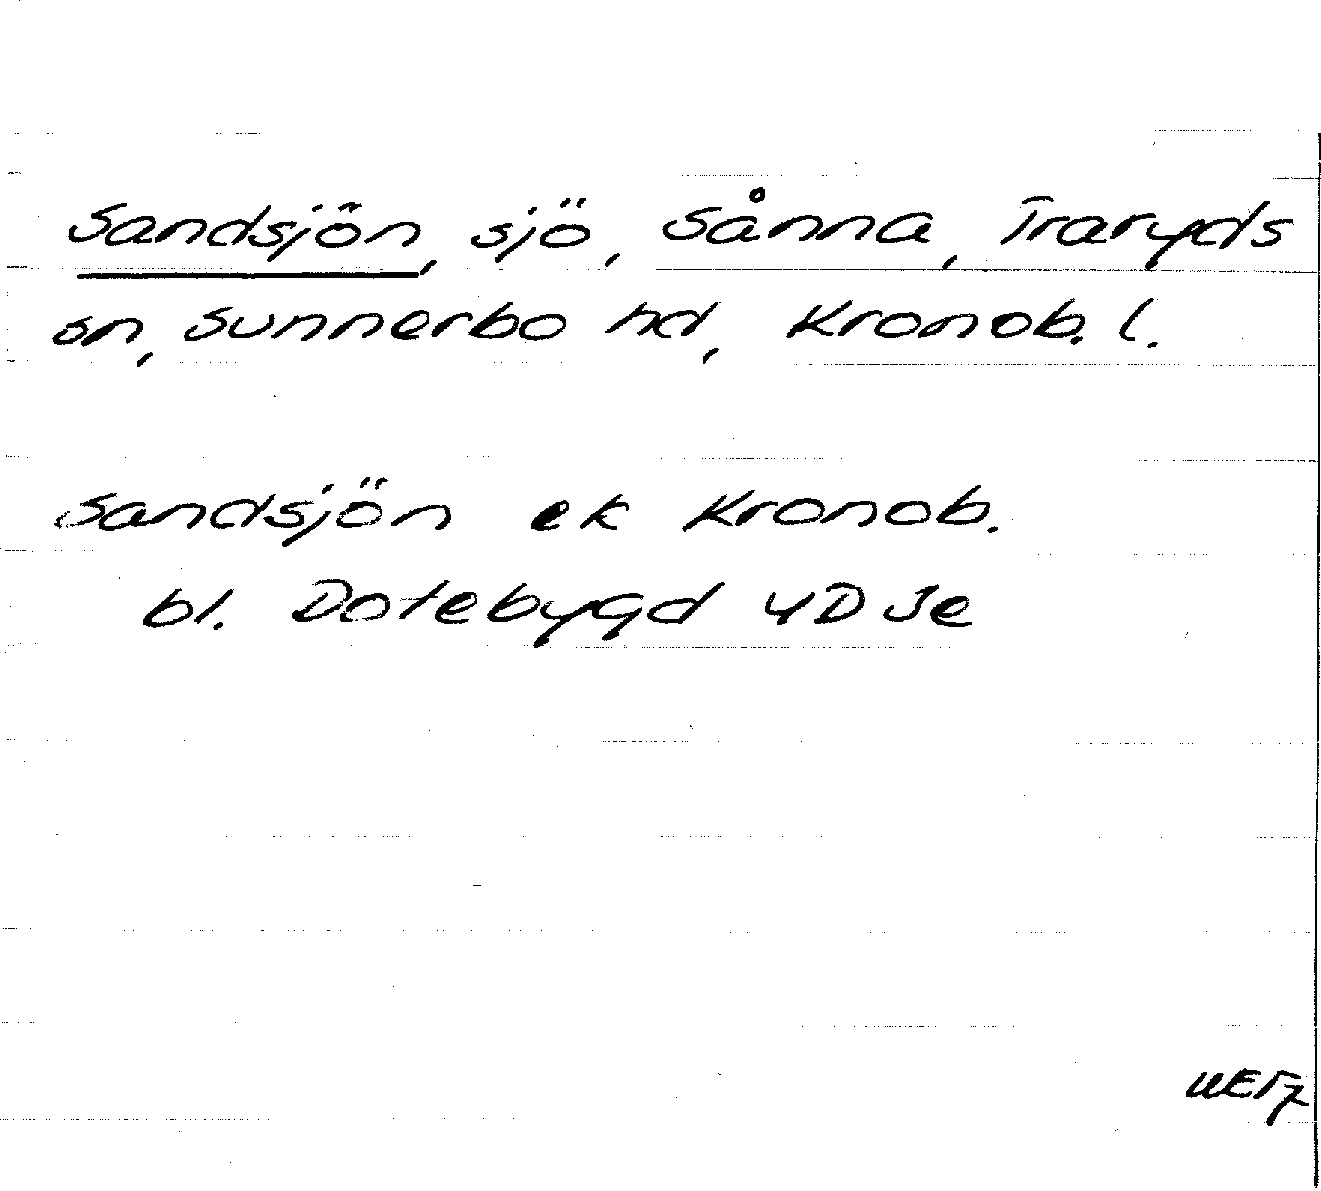 Sandsjön, sjö, Sånna, Traryds
sn, Sunnerbo hd, Kronob. l.
Sandsjön ek Kronob.
bl. Dotebygd 4D Je